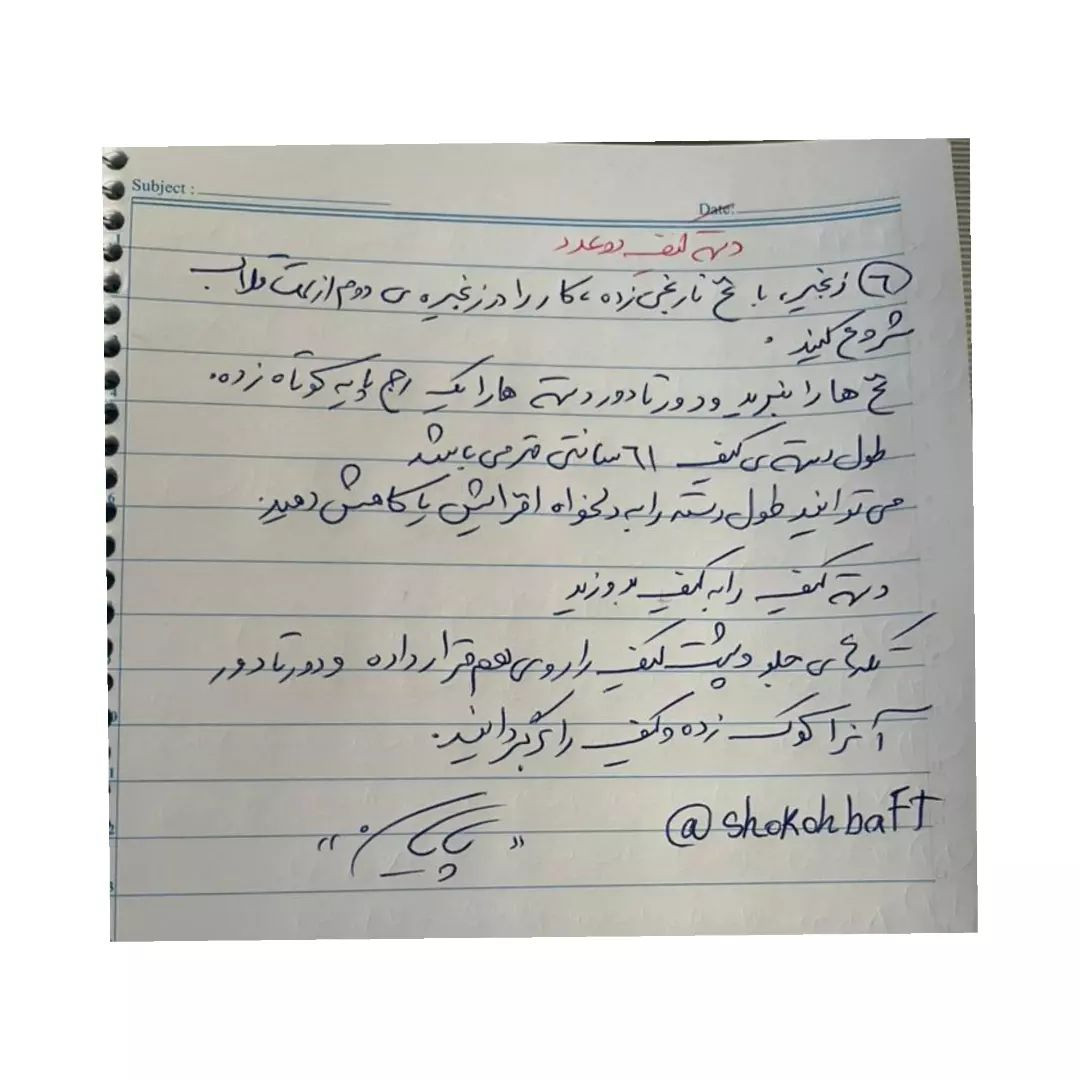 Subject :
Date:
دسته کیف دو عدد
۶ زنجیر، با نخ نارنجی زده، کار را در زنجیره ی دوم از سمت قلاب
شروع کنید.
نخ ها را ببرید و دور تا دور دسته ها را یک رج پایه کوتاه زده.
طول دسته ی کیف ۶۱ سانتی متر می باشد
می توانید طول دسته را به دلخواه افزایش یا کاهش دهید.
دسته کیف را به کیف بدوزید
تکه های جلو و پشت کیف را روی هم قرار داده و دور تا دور
آنرا کوک زده و کیف را برگردانید.
@shokohbaFT
"پایان"